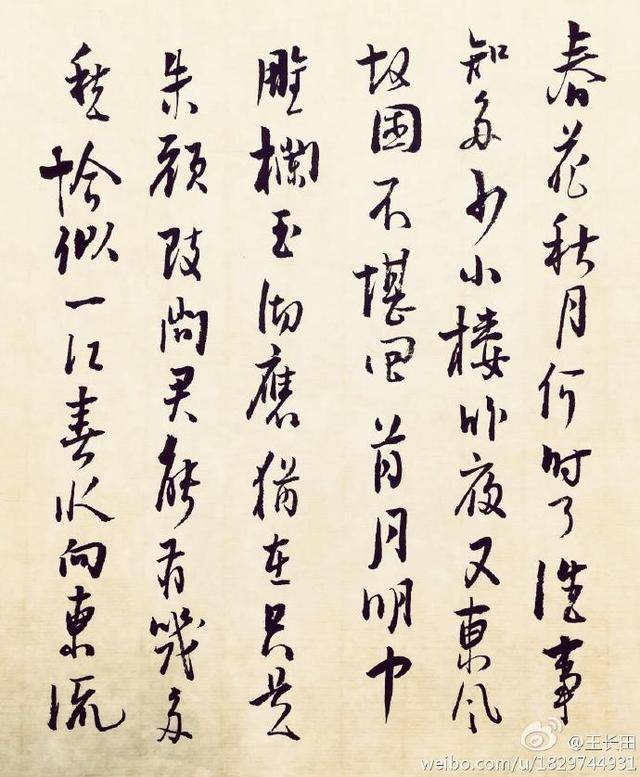 春花秋月何时了往事
知多少小楼昨夜又東风
故国不堪回首月明中
雕欄玉砌應猶在只是
朱颜改问君能有幾多
愁恰似一江春水向東流
@王长田
weibo.com/u/1829744931